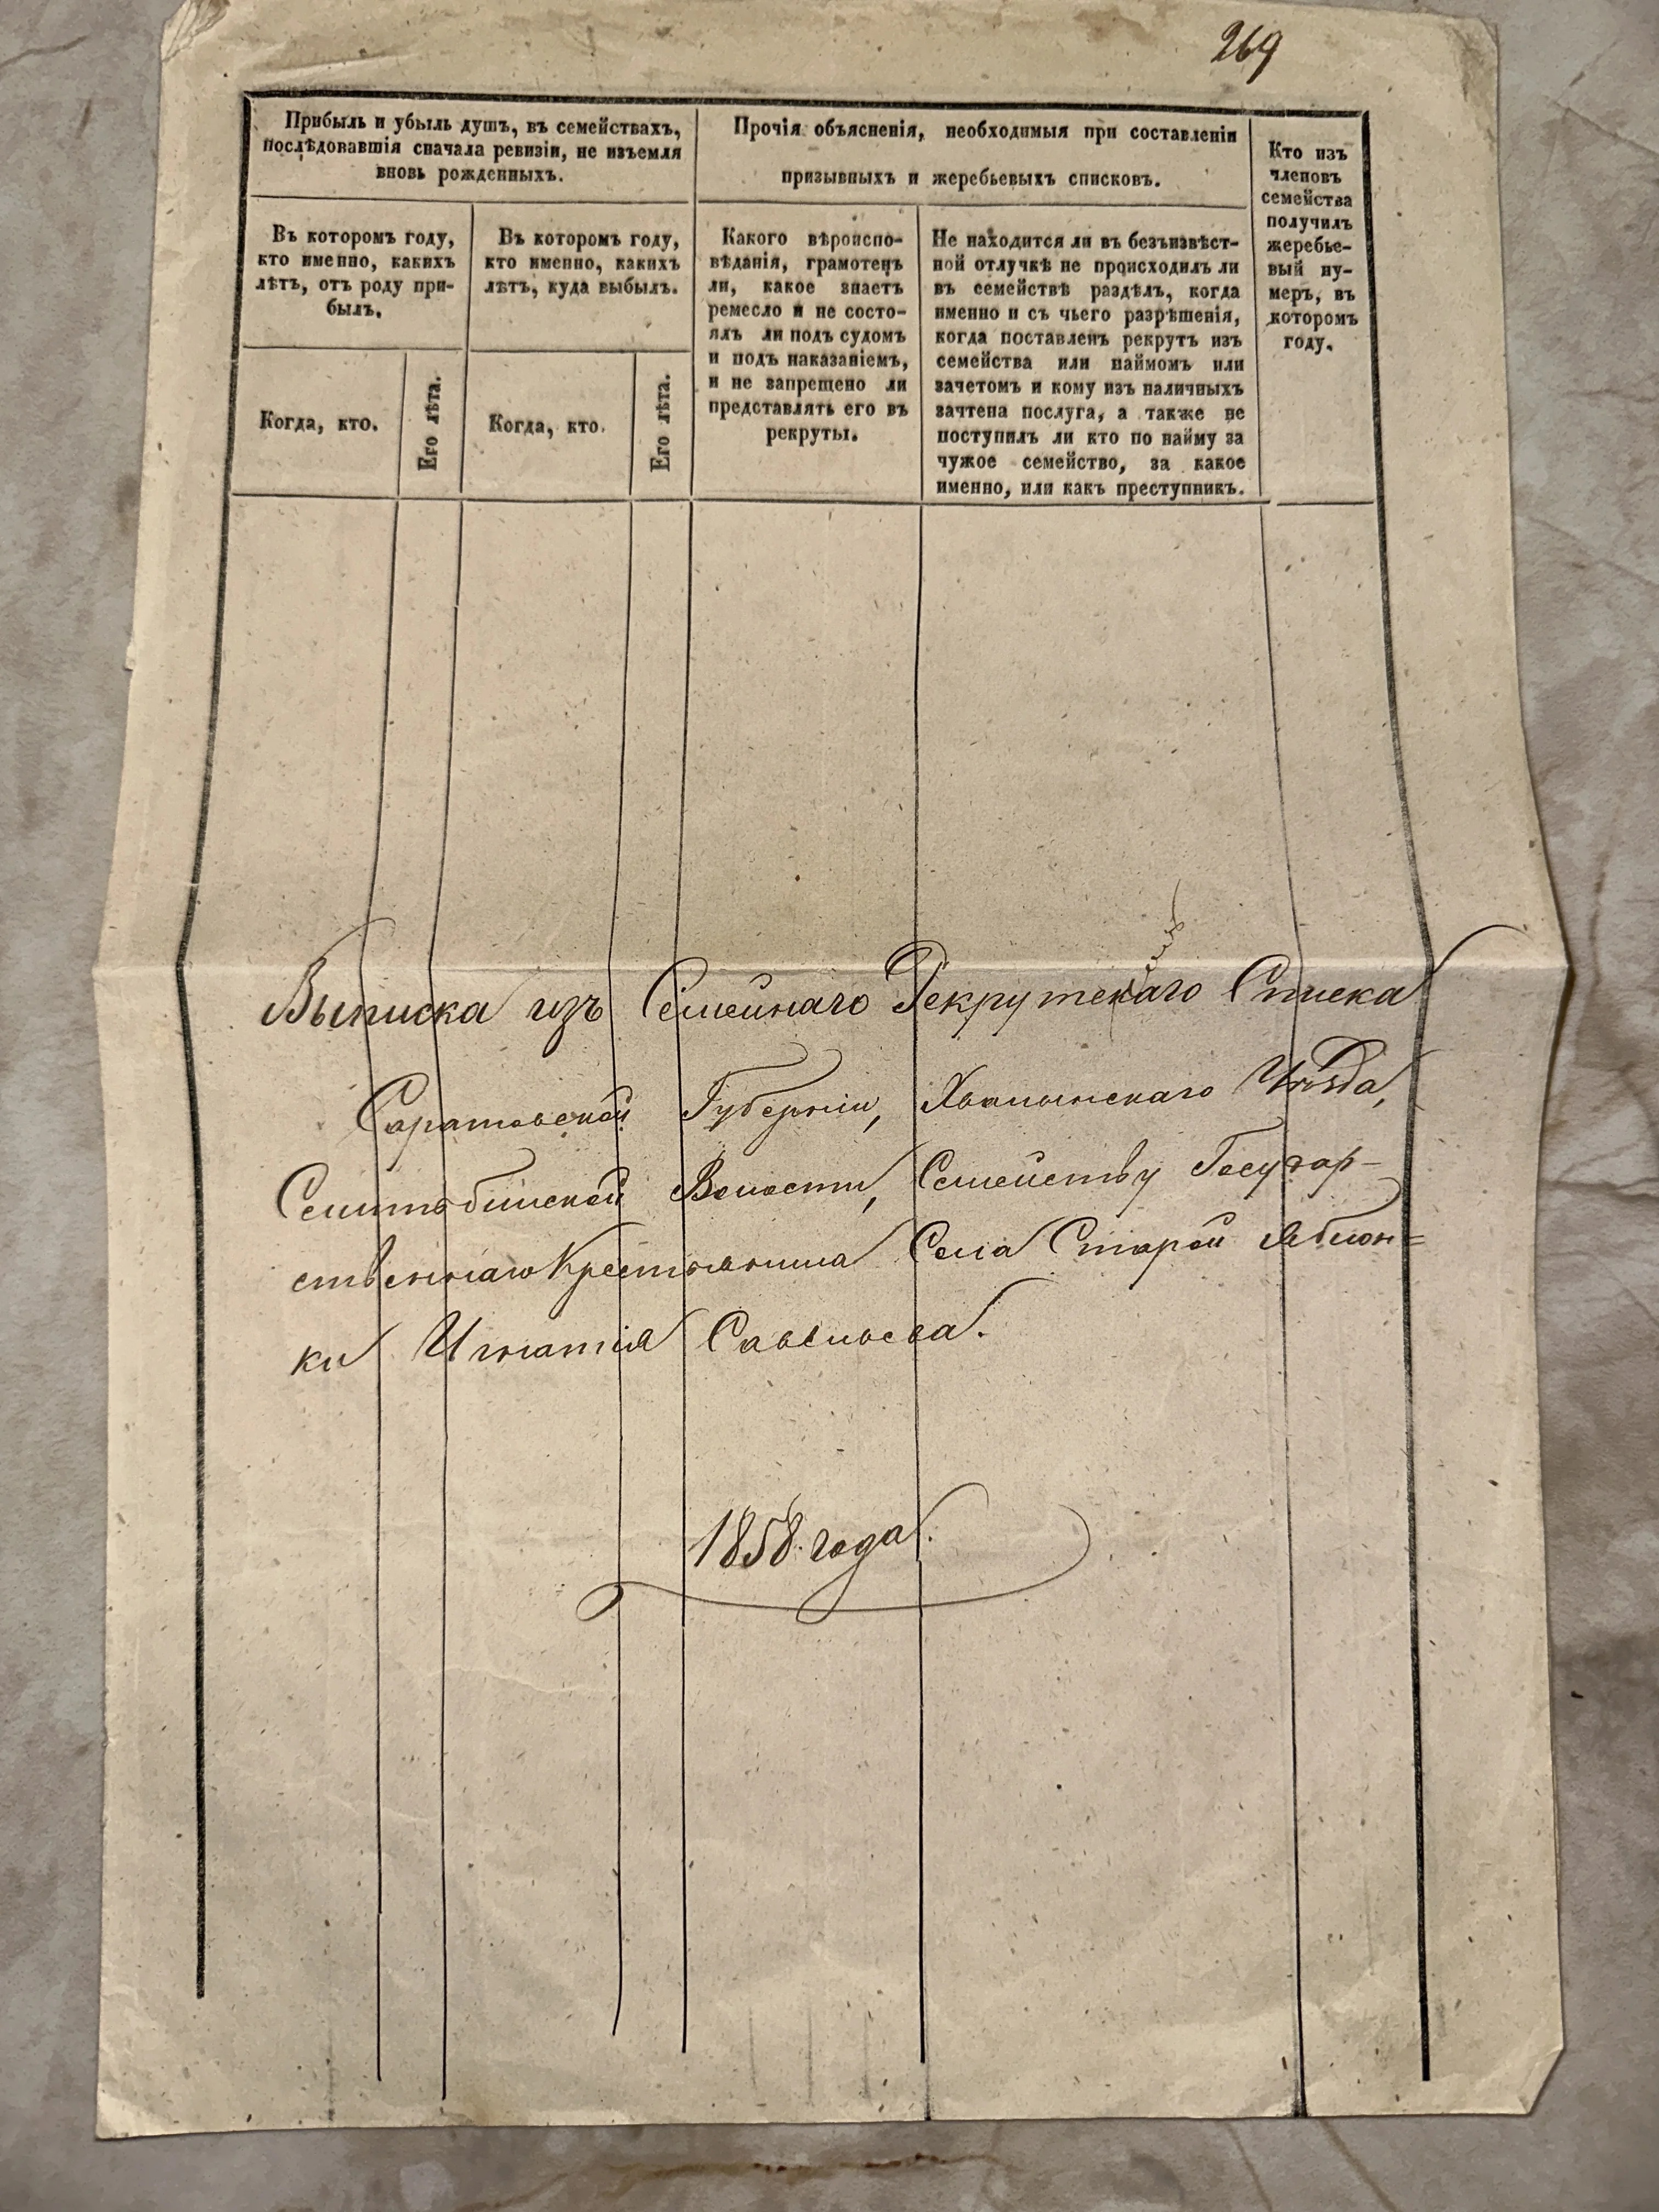 269
Прибыль и убыль душъ, въ семействахъ,
послѣдовавшія сначала ревизіи, не изъемля
вновь рожденныхъ.
Прочія объясненія, необходимыя при составленіи
призывныхъ и жеребьевыхъ списковъ.
Кто изъ
членовъ
семейства
получилъ
жеребье-
вый ну-
меръ, въ
которомъ
году.
Въ которомъ году,
кто именно, какихъ
лѣтъ, отъ роду при-
былъ.
Въ которомъ году,
кто именно, какихъ
лѣтъ, куда выбылъ.
Какого вѣроиспо-
вѣданія, грамотенъ
ли, какое знаетъ
ремесло и не состо-
ялъ ли подъ судомъ
и подъ наказаніемъ,
и не запрещено ли
представлять его въ
рекруты.
Не находится ли въ безъизвѣст-
ной отлучкѣ не происходилъ ли
въ семействѣ раздѣлъ, когда
именно и съ чьего разрѣшенія,
когда поставленъ рекрутъ изъ
семейства или наймомъ или
зачетомъ и кому изъ наличныхъ
зачтена послуга, а также не
поступилъ ли кто по найму за
чужое семейство, за какое
именно, или какъ преступникъ.
Когда, кто.
Его лѣта.
Когда, кто.
Его лѣта.
Выписка изъ Семейнаго Рекрутскаго Списка
Саратовской Губерніи, Хвалынскаго Уѣзда,
Волости, Семейству Государ-
ственнаго Крестьянина Села Старой Яблон=
ки Игнатія Савельева.
1858. года.